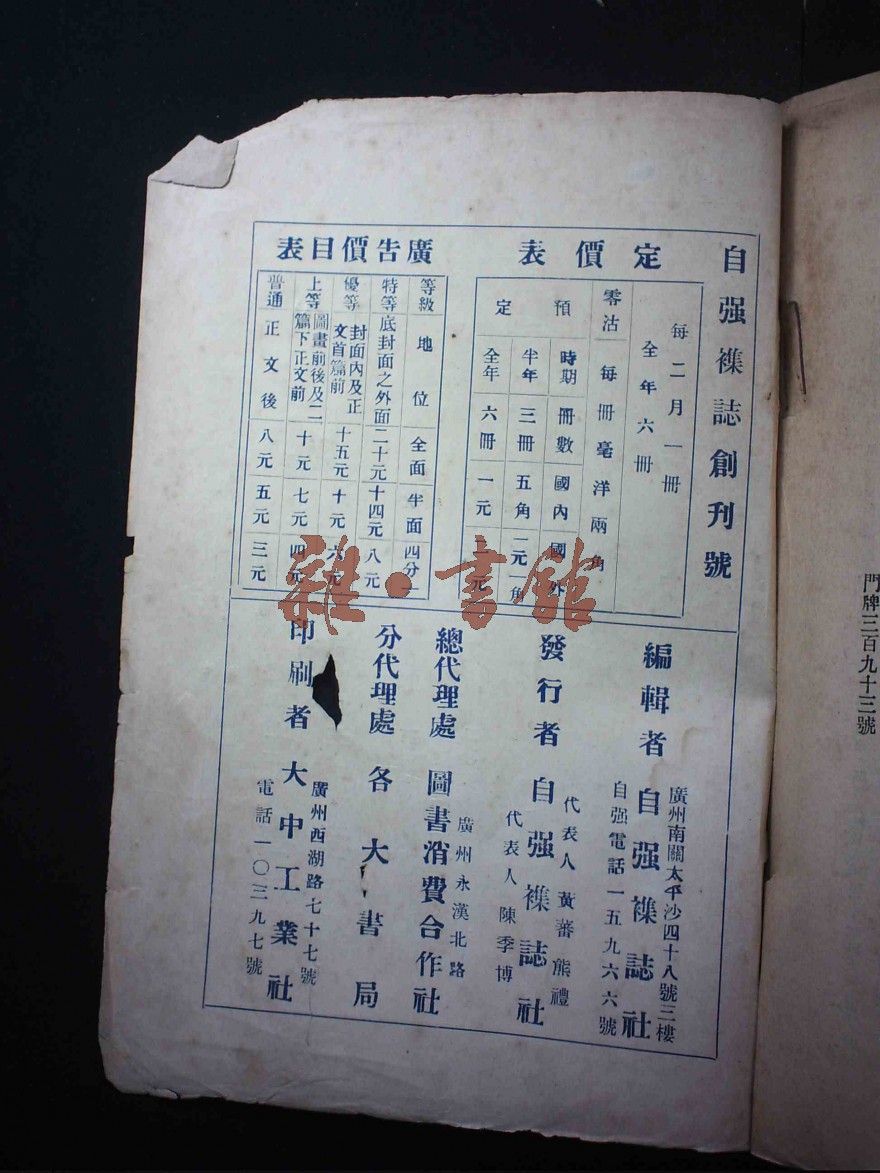 自强襍誌創刊號
定價表
每二月一冊
全年六冊
零沽 每冊毫洋兩角
預定
時期 冊數 國內 國外
半年 三冊 五角 一元一角
全年 六冊 一元 二元
廣告價目表
等級 地位 全面 半面 四分一
特等 底封面之外面 二十元 十四元 八元
優等 封面內及正文首篇前 十五元 十元 六元
上等 圖畫前後及二篇下正文前 十元 七元 四元
普通 正文後 八元 五元 三元
編輯者 自强襍誌社
廣州南關太平沙四十八號三樓
自强電話一五九六六號
發行者 自强襍誌社
代表人 黃蕃熊禮
代表人 陳季博
總代理處 圖書消費合作社
廣州永漢北路
分代理處 各大書局
印刷者 大中工業社
廣州西湖路七十七號
電話一〇三九七號
門牌三百九十三號
雜·書館